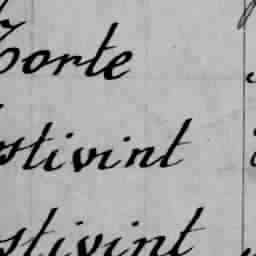 Torte
stivint
stivint